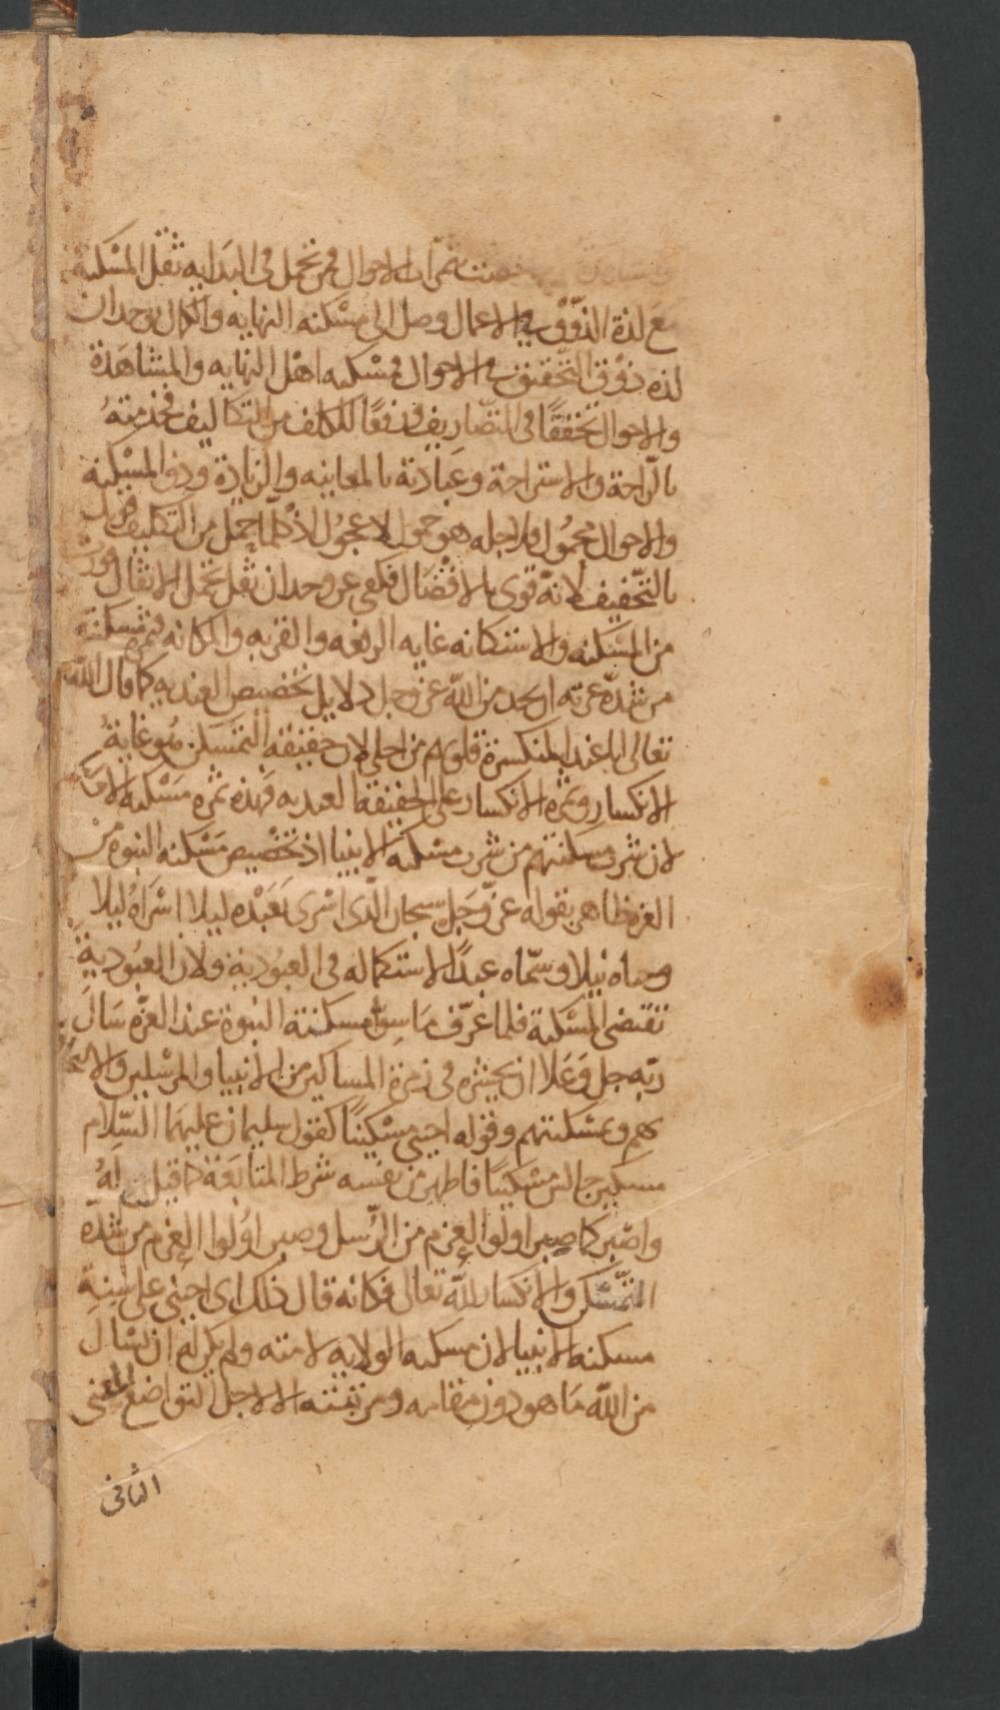 ثمرات الاحوال فمن تحمل فى البدايه ثقل المسكنة
مع لذة الذوق فى الاعمال وصل الى مسكنه النهايه والكمال بوجدان
لذه ذوق التحقيق فى الاحوال فمسكنه اهل النهايه والمشاهدة
والاحوال تخففًا فى المتصاريف ورفعًا للكلف من التكاليف فخدمته
بالراحة والاستراحة وعبادته بالمعاينه والزيادة وذو المسكنه
والاحوال محمول ولاجله هو حمول لا عجول اذ كلما حمل من التكليف
بالتخفيف لانه قوى بالافضال فكفى عن وجدان ثقل تحمل الاثقال
من المسكنه والاستكانه غايه الرفعه والقربه والمكانه
من شدة عزته ان يجد من الله عز وجل دلايل تخصيص العنديه كما قال الله
تعالى انا عند المنكسرة قلوبهم من اجلى لان حقيقه التمسكن هو غاية
الانكسار وثمره الانكسار على الحقيقة العنديه فهذه ثمره مسكنه
لان شرف مسكنتهم من شرف مسكنه الانبيا اذ تخصيص مسكنه النبوه من
العزه ظاهر بقوله عز وجل سبحان الذى اسرى بعبده ليلا اسراه ليلا
وسماه عبدًا لاستكماله فى العبودية ولان العبودية
تقتضى المسكنة فلما عرف مسكنته النبوة عند العزة سال
ربه جل وعلا ان يحشره فى زمرة المساكين من الانبيا والمرسلين
بهم وبمسكنتهم وقوله احينى مسكينًا كقول سليمان عليهما السلام
مسكين جالس مسكينًا فاظهر من نفسه شرط المتابعة كما قيل له
واصبر كما صبر اولوا العزم من الرسل وصبر اولوا العزم من شدة
التمسكن والانكسار لله تعالى فكانه قال ذلك اى احينى على
مسكنه الانبيا لان مسكنه الولايه لامته ولم يكن له ان يسال
من الله ما هو دون مقامه ومرتبته الا لاجل التواضع المعنى
الثانى